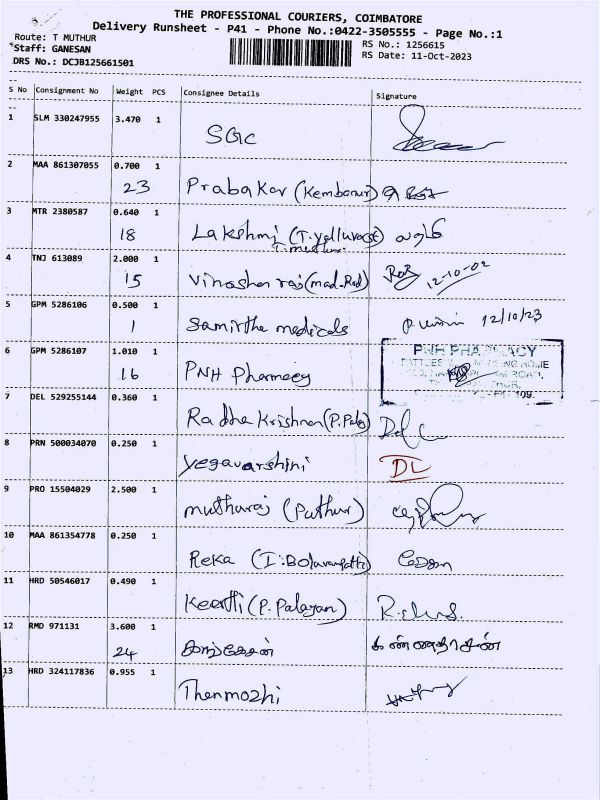 THE PROFESSIONAL COURIERS, COIMBATORE
Delivery Runsheet - P41 - Phone No.:0422-3505555 - Page No.:1
Route: T MUTHUR
Staff: GANESAN
DRS No.: DCJB125661501
RS No.: 1256615
RS Date: 11-Oct-2023
S No Consignment No Weight PCS Consignee Details Signature
1 SLM 330247955 3.470 1 SGC
2 MAA 861307055 0.700 1
23 Prabakar (Kembanur)
3 MTR 2380587 0.640 1
18 Lakshmi
T. muthur
4 TNJ 613089 2.000 1
15 Vinasher raj (mad.Red) 12-10-02
5 GPM 5286106 0.500 1
1 Samirtha medicals 12/10/23
6 GPM 5286107 1.010 1
16 PNH Pharmacy
PNH PHARMACY
7 DEL 529255144 0.360 1
Radha Krishnan (P.Palo)
8 PRN 500034070 0.250 1
Yegavarshini DL
9 PRO 15504029 2.500 1
muthuraj (Puthur)
10 MAA 861354778 0.250 1
Reka
11 HRD 50546017 0.490 1
Keerthi (P. Palayan)
12 RMD 971131 3.600 1
24 கண்ணதாசன்
13 HRD 324117836 0.955 1
Thenmozhi